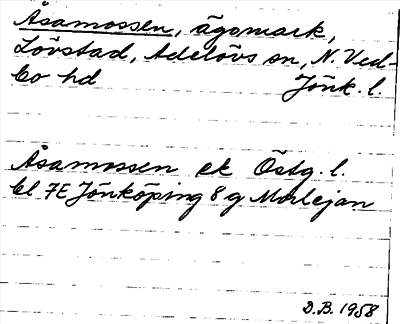 Åsamossen, ägomark,
Lövstad, Adelövs sn, N. Ved-
bo hd Jönk. l.
Åsamossen ek Östg. l.
bl 7E Jönköping 8 g Morlejan
D.B. 1958